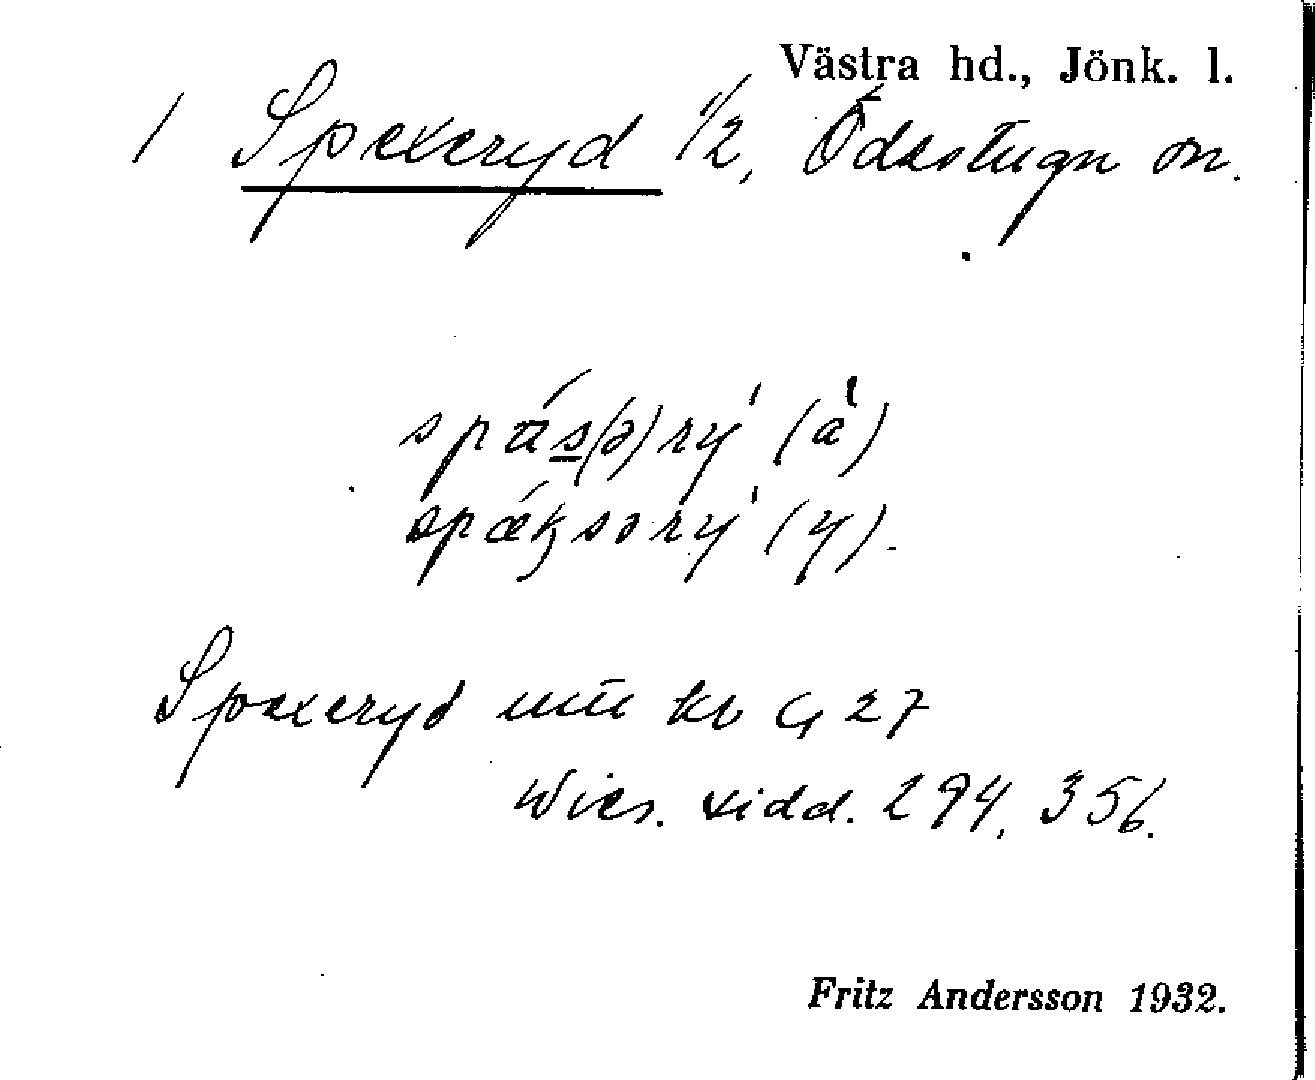 Västra hd., Jönk. l.
1 Spexeryd 1/2, Ödestugu sn.
spä́s(ə)rý (à)
spǽksərý (y).
Spexeryd mtl kb G 27
Wies. sidd. 294, 356.
Fritz Andersson 1932.